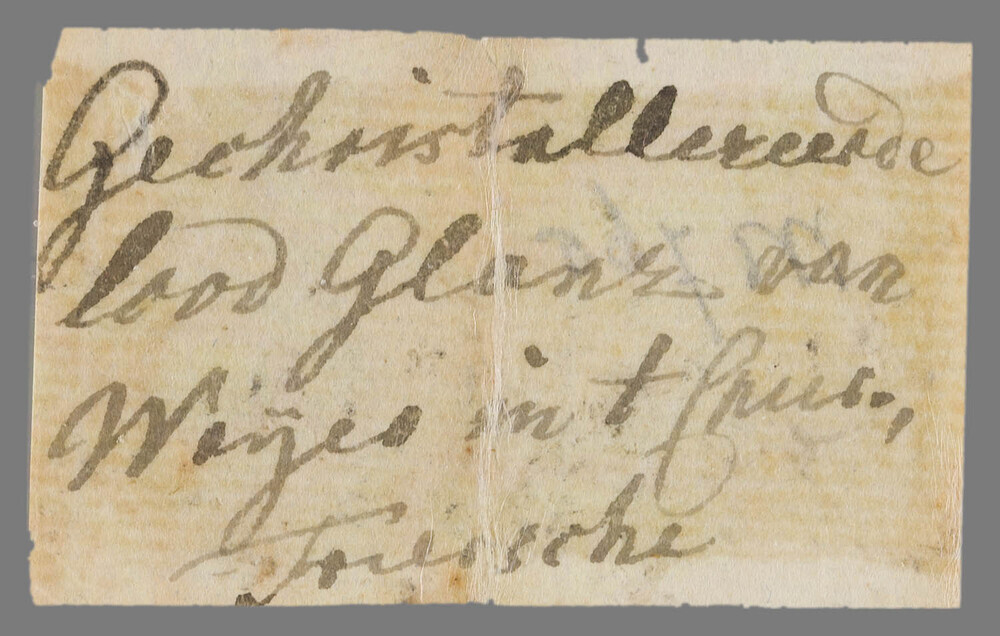 Gechristallereerde
lood Glanz van
Weyes in t Chur.,
Triersche